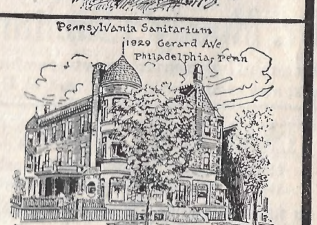 Pennsylvania Sanitarium
1929 Gerard Ave
Philadelphia, Penn